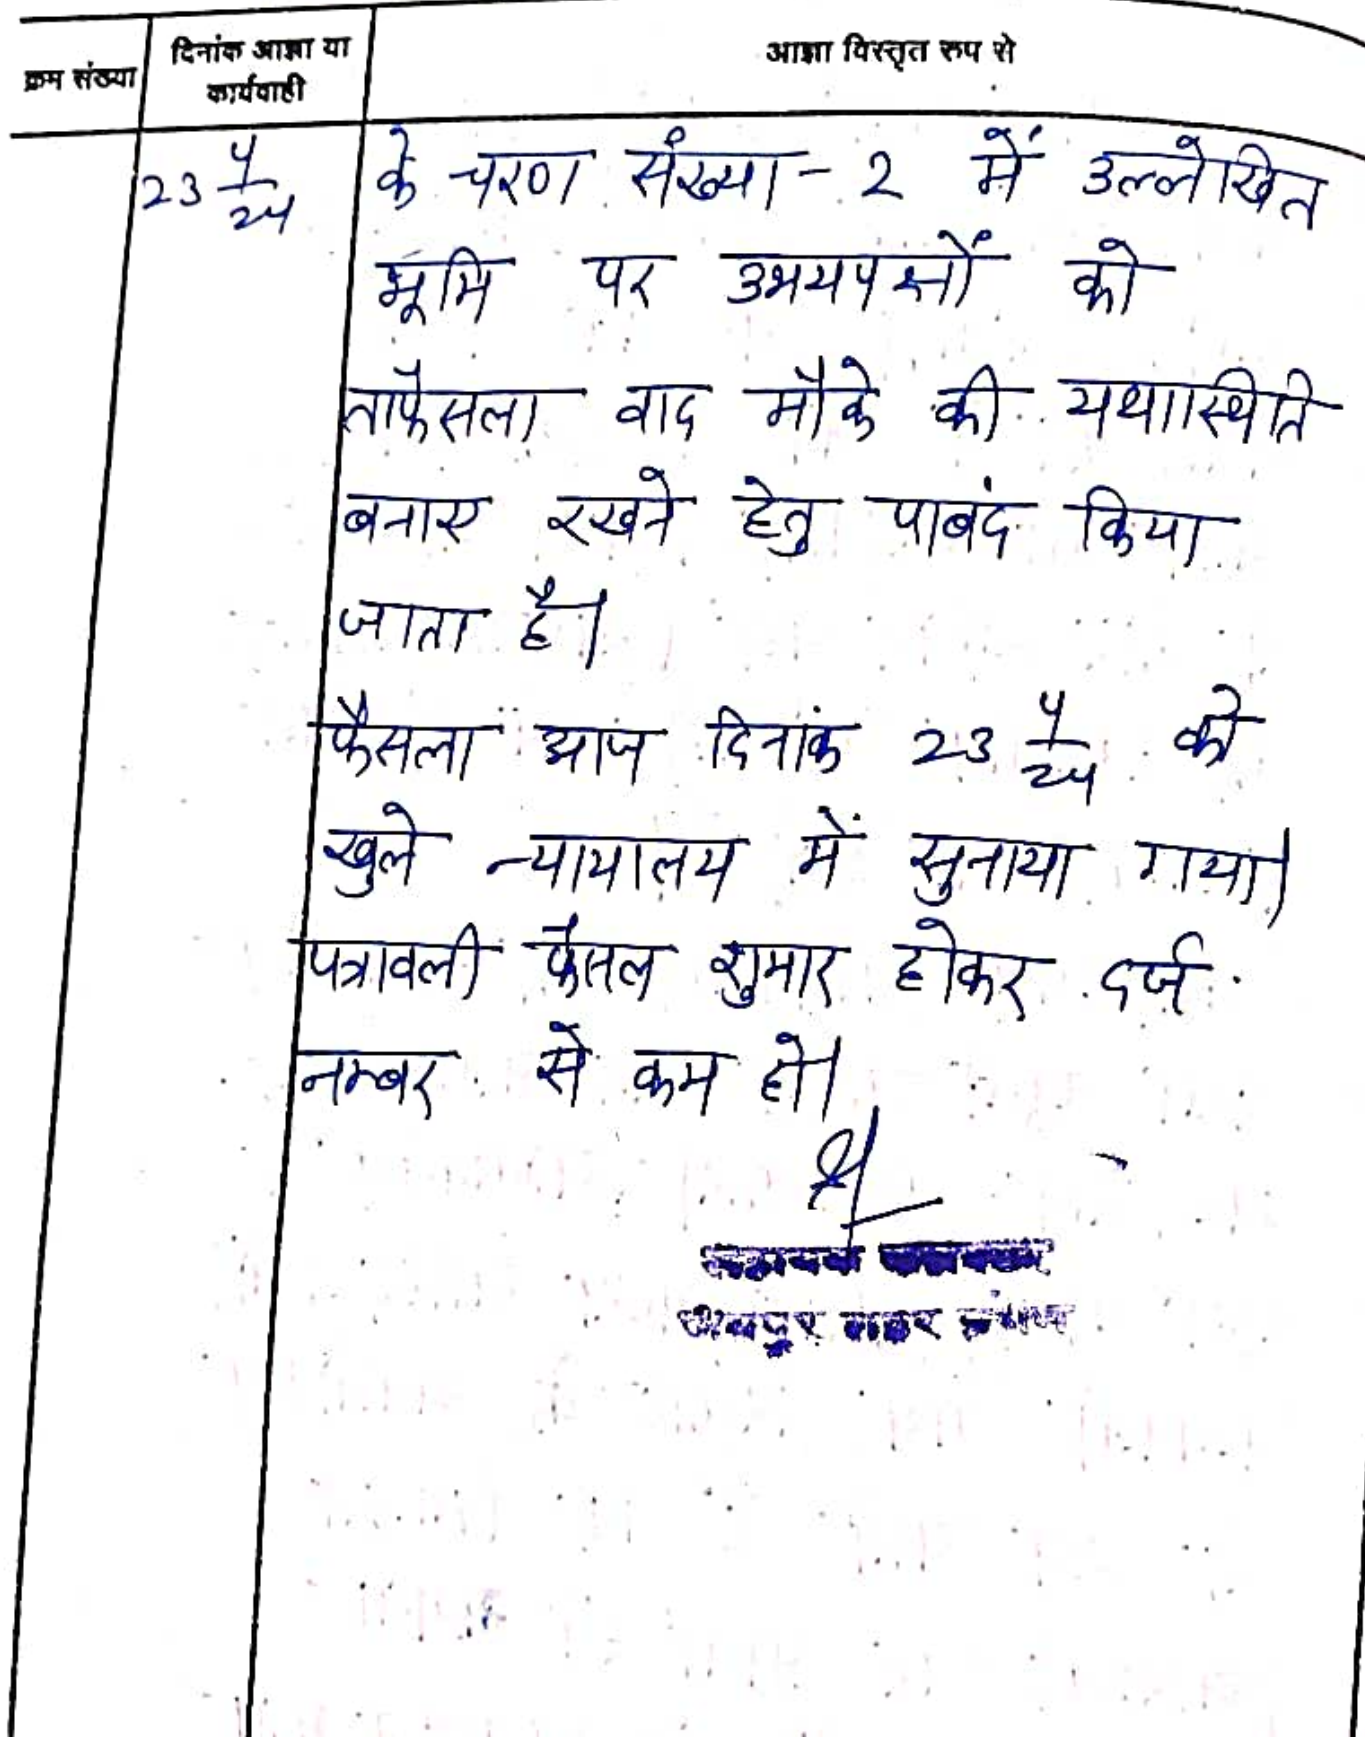 क्रम संख्या
दिनांक आज्ञा या
कार्यवाही
आज्ञा विस्तृत रूप से
23 4/24
के चरण संख्या - 2 में उल्लेखित
भूमि पर उभयपक्षों को
ताफैसला वाद मौके की यथास्थिति
बनाए रखने हेतु पाबंद किया
जाता है।
फैसला आज दिनांक 23 4/24 को
खुले न्यायालय में सुनाया गया।
पत्रावली फैसल शुमार होकर दर्ज
नम्बर से कम हो।
सहायक कलक्टर
जयपुर शहर